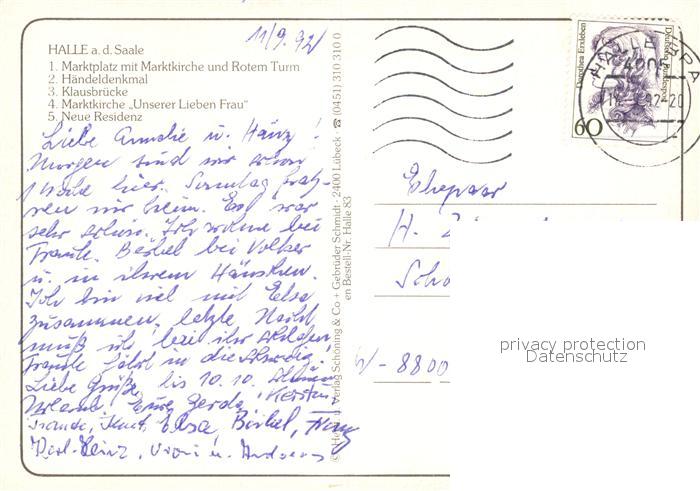 11/9.92
HALLE a. d. Saale
1. Marktplatz mit Marktkirche und Rotem Turm
2. Händeldenkmal
3. Klausbrücke
4. Marktkirche „Unserer Lieben Frau"
5. Neue Residenz
Liebe Annelie u. Heinz!
Morgen sind wir schon
1 Woche hier. Sonntag fah-
ren wir heim. Es war
sehr schön. Ich wohne bei
Traute. Bärbel bei Volker
u. in ihrem Häuschen.
Ich bin viel mit Elsa
zusammen, letzte Nacht
muß ich bei ihr schlafen,
Traute fährt in die
Liebe Grüße, bis 10.10.
Urlaub! Eure Gerda, Kerstin,
Traude, Kurt, Elsa, Bärbel, Franz
Karl-Heinz, u. Andreas
Verlag Schöning & Co + Gebrüder Schmidt · 2400 Lübeck · ☎ (0451) 310 310 0
en Bestell-Nr. Halle 83
Dorothea Erxleben
Deutsche Bundespost
60
HALLE
4005
92-20
Ehepaar
H.
Scho
W-8800
privacy protection
Datenschutz